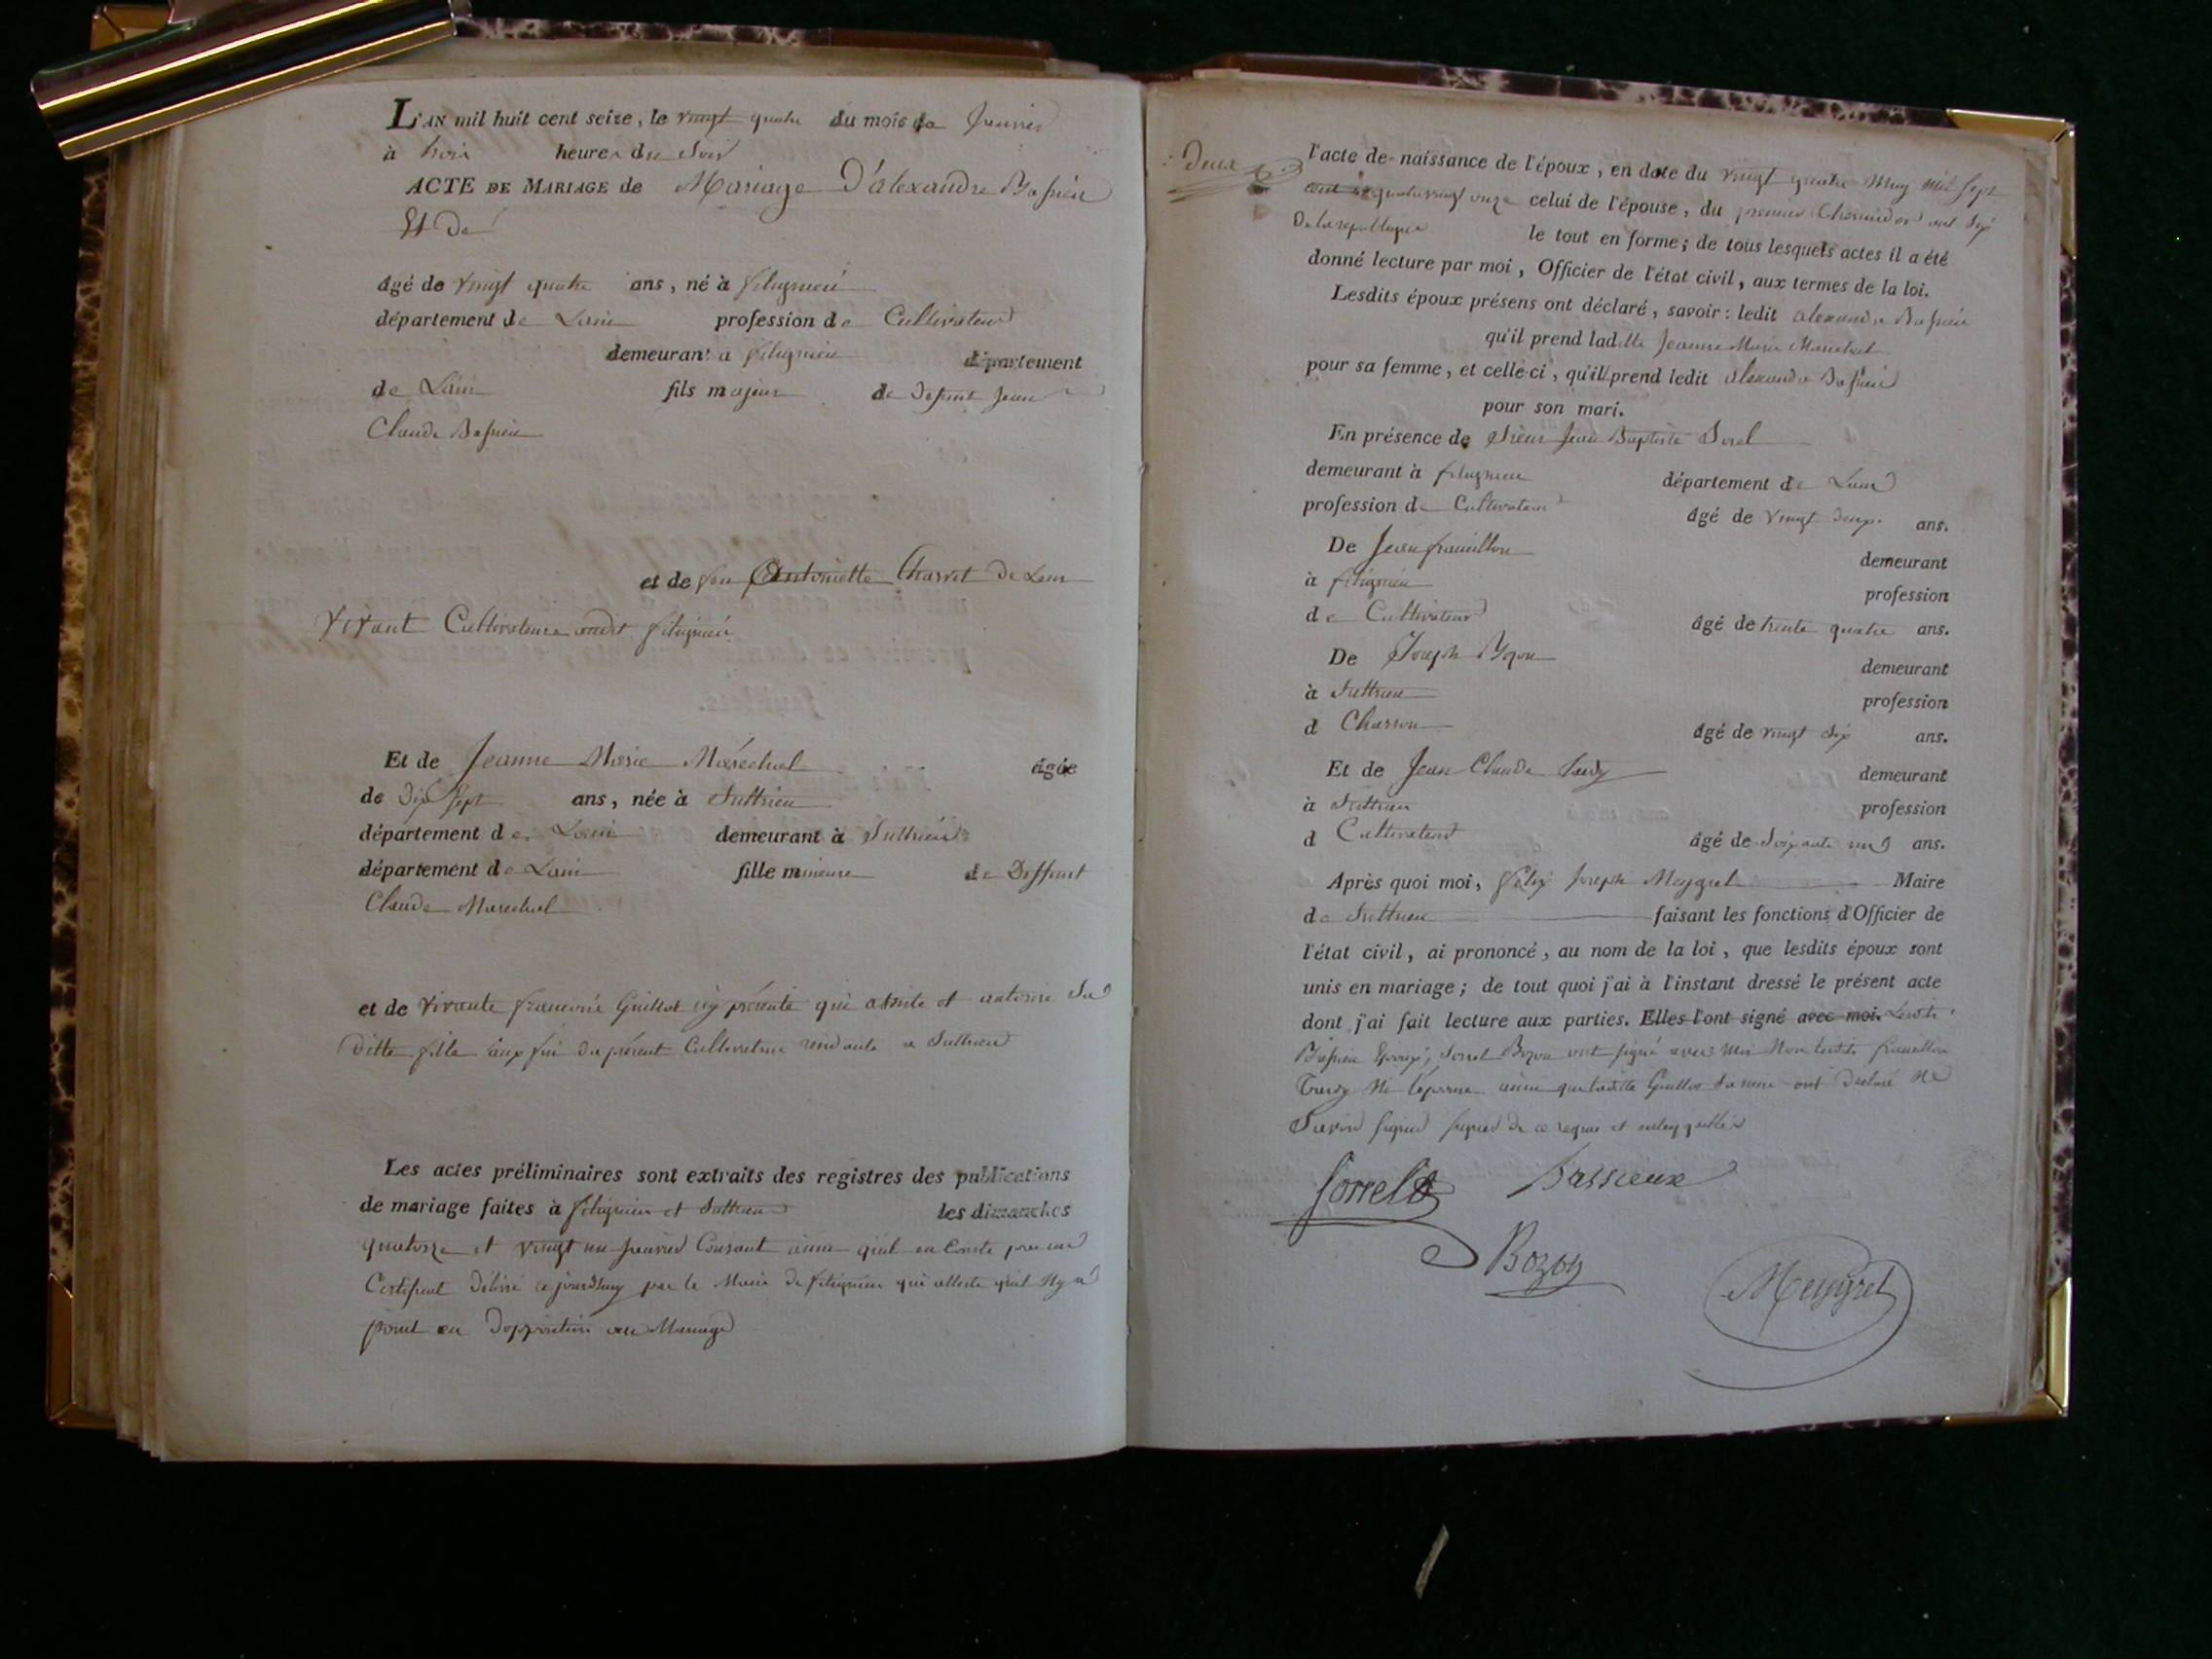 L'AN mil huit cent seize, le vingt quatre du mois de Janvier
à trois heures du Soir
ACTE DE MARIAGE de Mariage D'alexandre Bassieu
Et De
âgé de vingt quatre ans, né à fitignieu
département de Lain profession de Cultivateur
demeurant a fitignieu département
de Lain fils majeur de Defunt Jean
Claude Bassieu
et de feu Antoinette Charvet De Leur
vivant Cultivateurs audit fitignieu
Et de Jeanne Marie Maréchal âgée
de Dix Sept ans, née à Suttrieu
département de Lain demeurant à Suttrieu
département de Lain fille mineure de Deffunt
Claude Marechal
et de vivante francoise Guillot icy présente qui assiste et autorise Sa
Ditte fille aux fin du présent Cultivatrice residante a Suttrieu
Les actes préliminaires sont extraits des registres des publications
de mariage faites à fitignieu et Suttrieu les dimanches
quatorze et vingt un janvier Courant ainsi quil en Conste par un
Certificat Délivré ce jourdhuy par le Maire de fitignieu qui atteste quil Ny a
point eu Dopposition au Mariage
Deux
l'acte de naissance de l'époux, en date du vingt quatre May mil sept
cent quatrevingt onze celui de l'épouse, du premier Thermidor an Six
De la republique le tout en forme; de tous lesquels actes il a été
donné lecture par moi, Officier de l'état civil, aux termes de la loi.
Lesdits époux présens ont déclaré, savoir: ledit alexandre Bassieu
qu'il prend laditte Jeanne Marie Marechal
pour sa femme, et celle-ci, qu'il prend ledit alexandre Bassieu
pour son mari.
En présence de Sieur Jean Baptiste Sorel
demeurant à fitignieu département de Lain
profession de Cultivateur âgé de vingt Deux ans.
De Jean fraullion demeurant
à fitignieu profession
de Cultivateur âgé de trente quatre ans.
De Joseph Bozon demeurant
à Suttrieu profession
d Charron âgé de vingt Six ans.
Et de Jean Claude demeurant
à Suttrieu profession
d Cultivateur âgé de Soixante un ans.
Après quoi moi, felix Joseph Meygret Maire
de Suttrieu faisant les fonctions d'Officier de
l'état civil, ai prononcé, au nom de la loi, que lesdits époux sont
unis en mariage; de tout quoi j'ai à l'instant dressé le présent acte
dont j'ai fait lecture aux parties. Elles l'ont signé avec moi. Lesdits
Bassieu Epoux, Sorrel Bozon ont signé avec moi Non lesdits
ni l'épouse ainsi que laditte Guillot Sa mere ont Declaré Ne
Savoir signer de ce requis et
Sorrel Bassieux
Bozon
Meygret